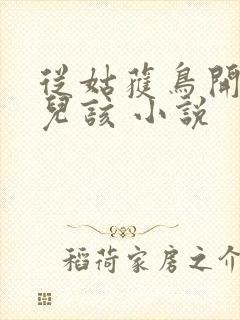 從姑蓷鳥開
兒該 小說
稻荷家房之介